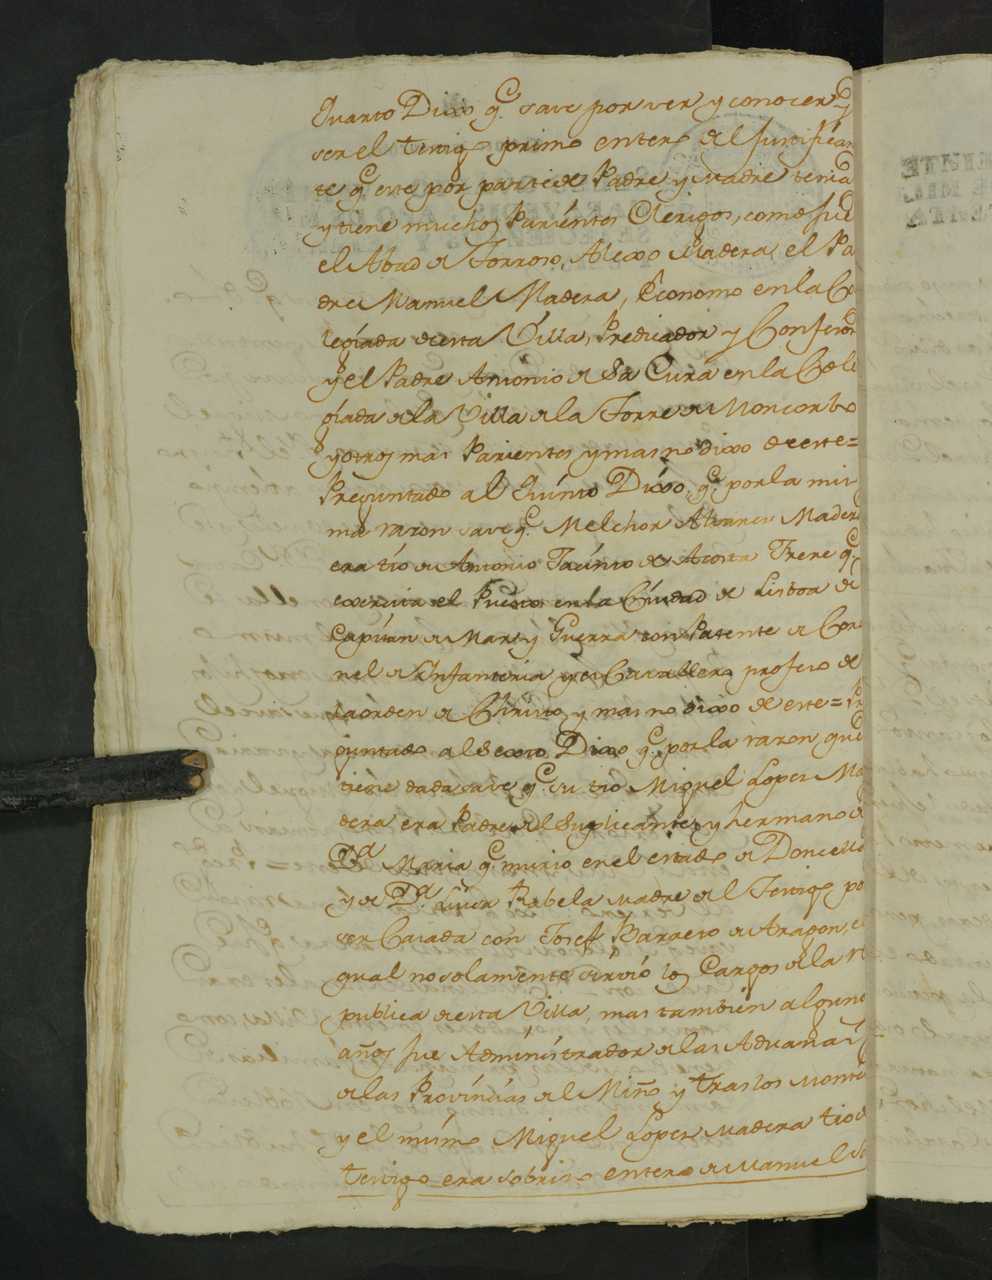 Quarto Dixo q.e save por ver y conocer y
ser el testigo primo entero del justifican
te q.e este por parte de Padre y Madre tenia
y tiene muchos Parientes Clerigos, como fue
el Abad de Torroso, Alexo Madera, el Pa
dre Manuel Madera, Economo en la Co
legiada de esta Villa, Predicador y Confesor
y el Padre Antonio de Sa Cura en la Cole
giada de la Villa de la Torre de Moncorbo
y otros mas Parientes y mas no dixo de este=
Preguntado al Quinto Dixo, q.e por la mis
ma razon save q.e Melchor Alvares Madera
era tio de Antonio Jacinto de Acosta Frere q.e
exercita el Puesto en la Ciudad de Lisboa de
Capitan de Mar y Guerra con Patente de Coro
nel de Infanteria y es Cavallero profeso de
la orden de Christo, y mas no dixo de este= Pre
guntado al Sexto Dixo q.e por la razon que
tiene dada save q.e su tio Miguel Lopes Ma
dera era Padre del Suplicante y hermano de
D.a Maria q.e murio en el estado de Doncella
y de D.a Luisa Rabela Madre del Testigo po
ser Casada con Josef Barreto de Aragon, el
qual no solamente sirvió los Cargos de la Re
publica de esta Villa, mas tambien alguno
años fue Administrador de las Aduanas
de las Provincias del Miño y Traslos Monte
y el mismo Miguel Lopes Madera tio de
testigo era sobrino entero de Manuel